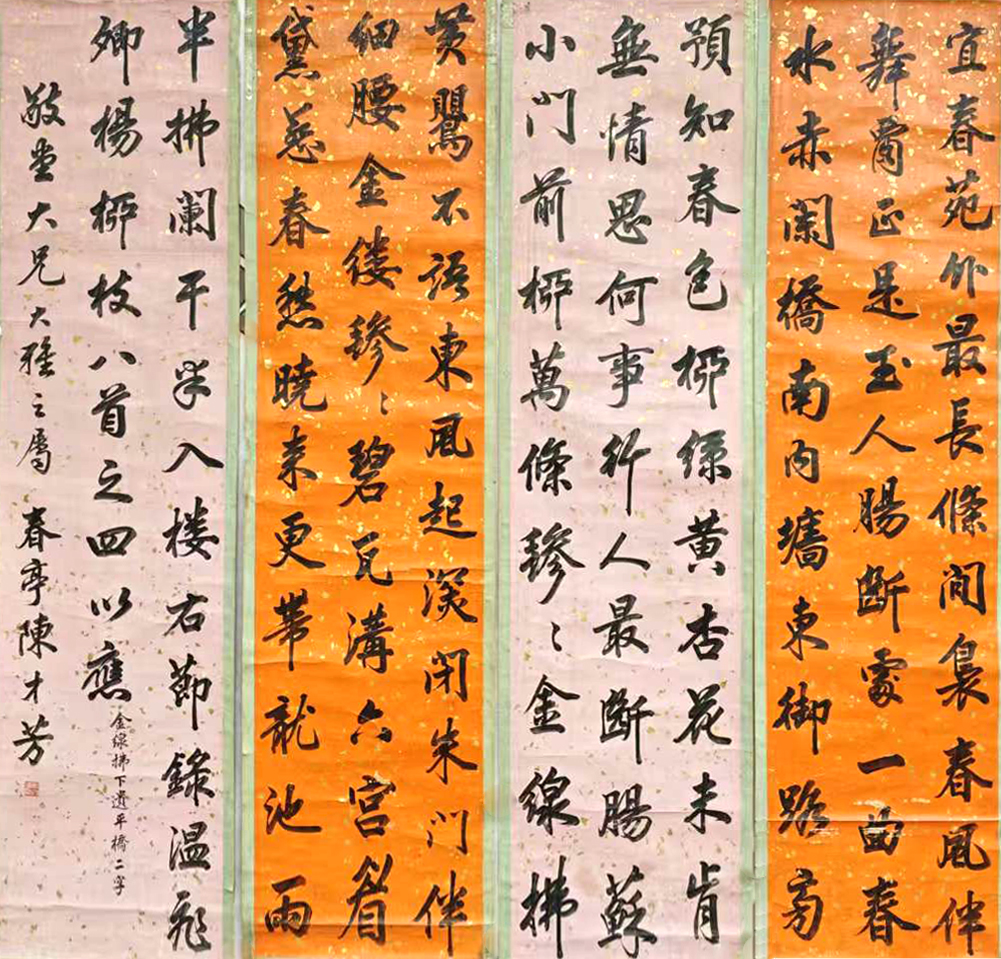 宜春苑外最長條間裊春風伴
舞腰正是玉人腸斷處一曲春
水赤闌橋南內墻東御路旁
預知春色柳綠黃杏花未肯
無情思何事行人最斷腸蘇
小門前柳萬條毿〻金線拂
黃鸎不語東風起深閉朱門伴
細腰金縷毿〻碧瓦溝六宮眉
黛惹春愁曉來更帶龍池雨
半拂闌干半入楼右節錄温飛
卿楊柳枝八首之四以應
金線拂下遺平橋二字
敬堂大兄大雅之屬 春亭陳才芳